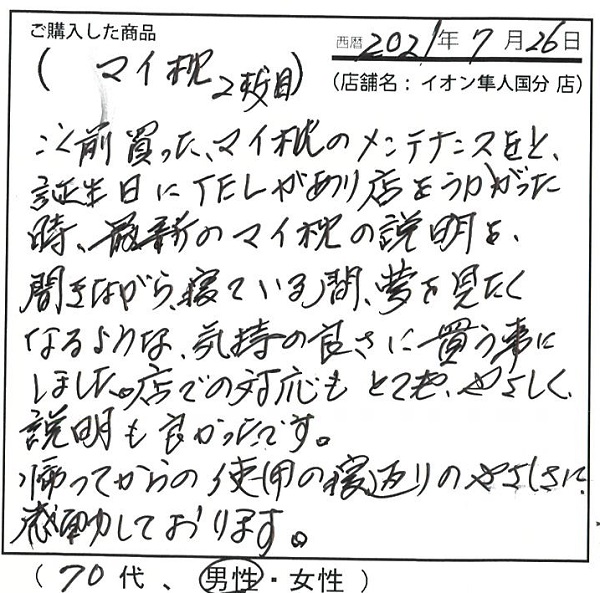 ご購入した商品
西暦 2021年 7月26日
( マイ枕 2枚目)
(店舗名: イオン隼人国分 店)
以前買った、マイ枕のメンテナンスをと、
誕生日にTELがあり店をうかがった
時、最新のマイ枕の説明を、
聞きながら、寝ている間、夢を見たく
なるような、気持の良さに買う事に
しました。店での対応も とても、やさしく、
説明も良かったです。
帰ってからの使用の寝返りのやさしさに、
感動しております。
( 70代、男性・女性 )